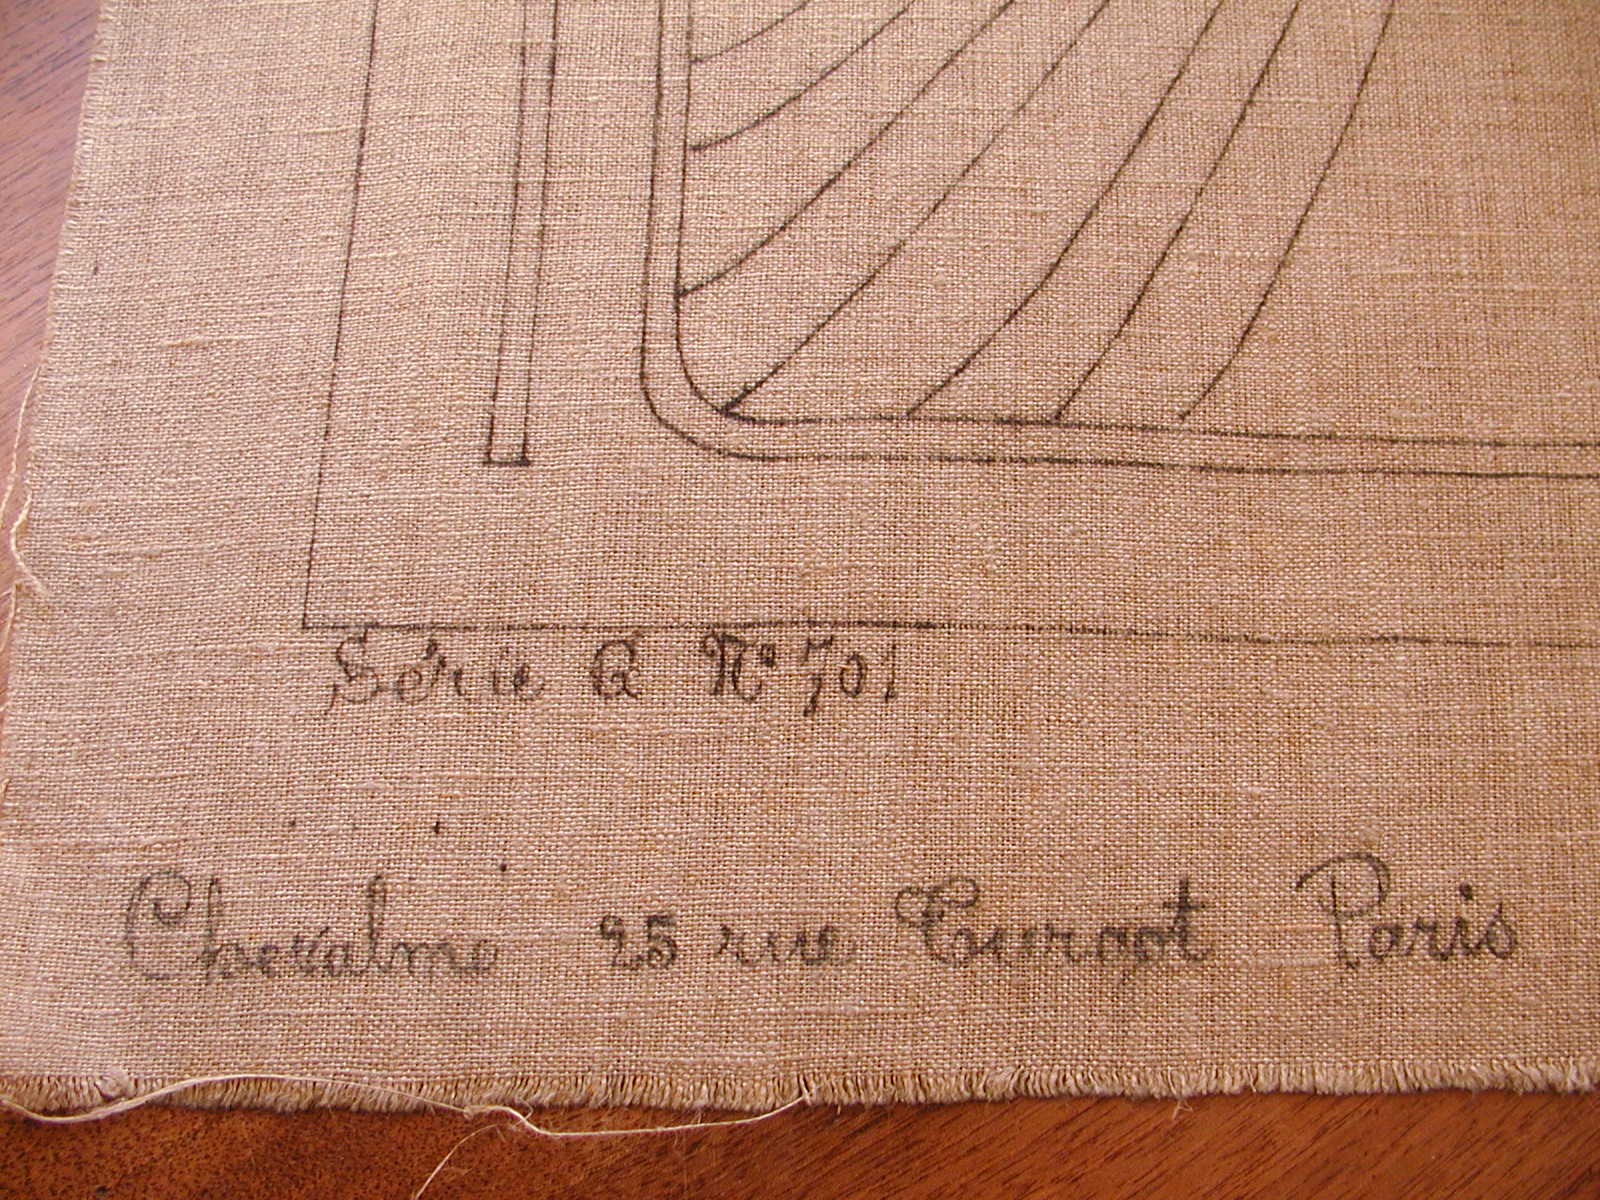 Série G Nº 701
Chevalme 25 rue Turgot Paris